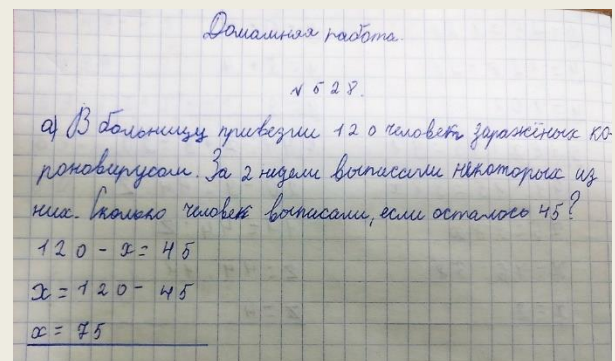 Домашняя работа.
№ 528.
а) В больницу привезли 120 человек заражёных ко-
роновирусом. За 2 недели выписали некоторых из
них. Сколько человек выписали, если осталось 45?
120 - x = 45
x = 120 - 45
x = 75